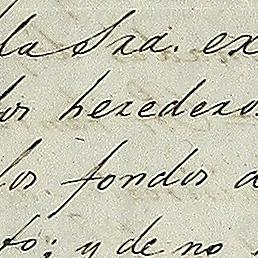 la Sra. ex
los herederos
los fondos a
to; y de no